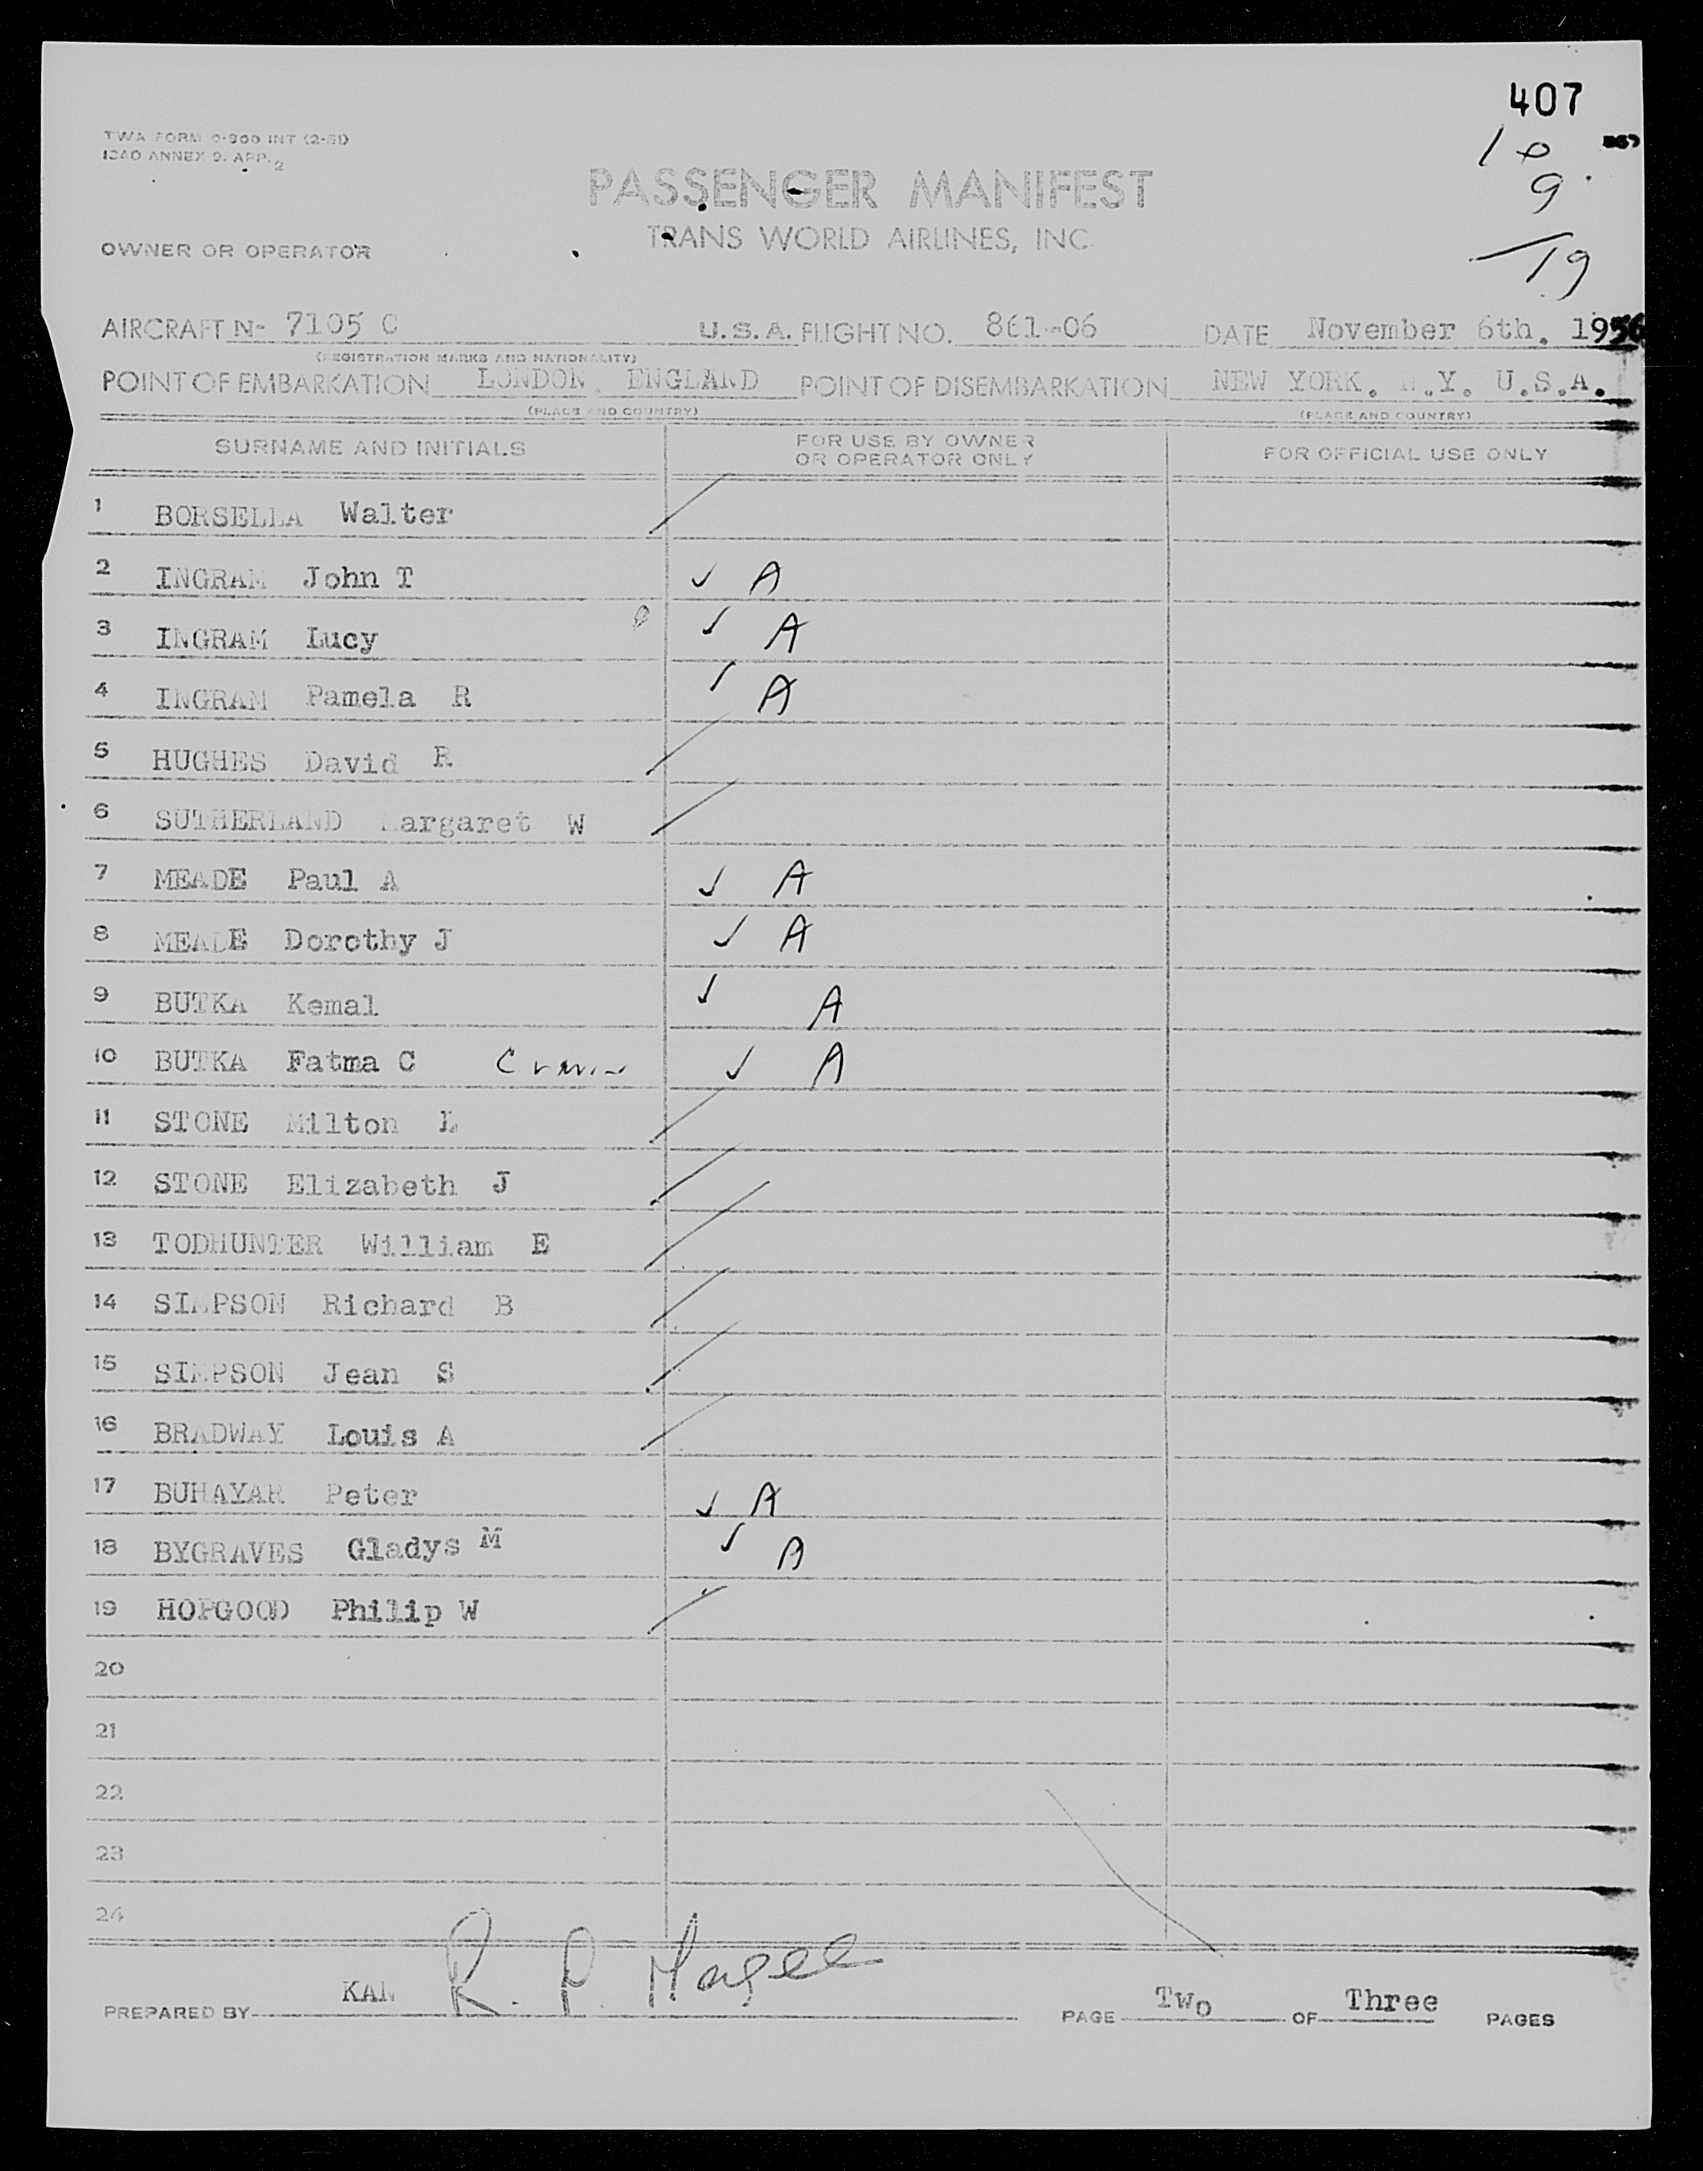 407
TWA FORM 0-900 INT (2-51)
ICAO ANNEX 9. APP. 2
10
9
19
PASSENGER MANIFEST
TRANS WORLD AIRLINES, INC.
OWNER OR OPERATOR
AIRCRAFT N- 7105 C U.S.A. FLIGHT NO. 861-06 DATE November 6th. 1956
(REGISTRATION MARKS AND NATIONALITY)
POINT OF EMBARKATION LONDON. ENGLAND POINT OF DISEMBARKATION NEW YORK. N.Y. U.S.A.
(PLACE AND COUNTRY) (PLACE AND COUNTRY)
SURNAME AND INITIALS FOR USE BY OWNER OR OPERATOR ONLY FOR OFFICIAL USE ONLY
1 BORSELLA Walter
2 INGRAM John T ✓ A
3 INGRAM Lucy ✓ A
4 INGRAM Pamela R ✓ A
5 HUGHES David R
6 SUTHERLAND Margaret W
7 MEADE Paul A ✓ A
8 MEADE Dorothy J ✓ A
9 BUTKA Kemal ✓ A
10 BUTKA Fatma C ✓ A
11 STONE Milton L
12 STONE Elizabeth J
13 TODHUNTER William E
14 SIMPSON Richard B
15 SIMPSON Jean S
16 BRADWAY Louis A
17 BUHAYAR Peter ✓ A
18 BYGRAVES Gladys M ✓ A
19 HOPGOOD Philip W
20
21
22
23
24
PREPARED BY KAN R. P. Magee PAGE Two OF Three PAGES